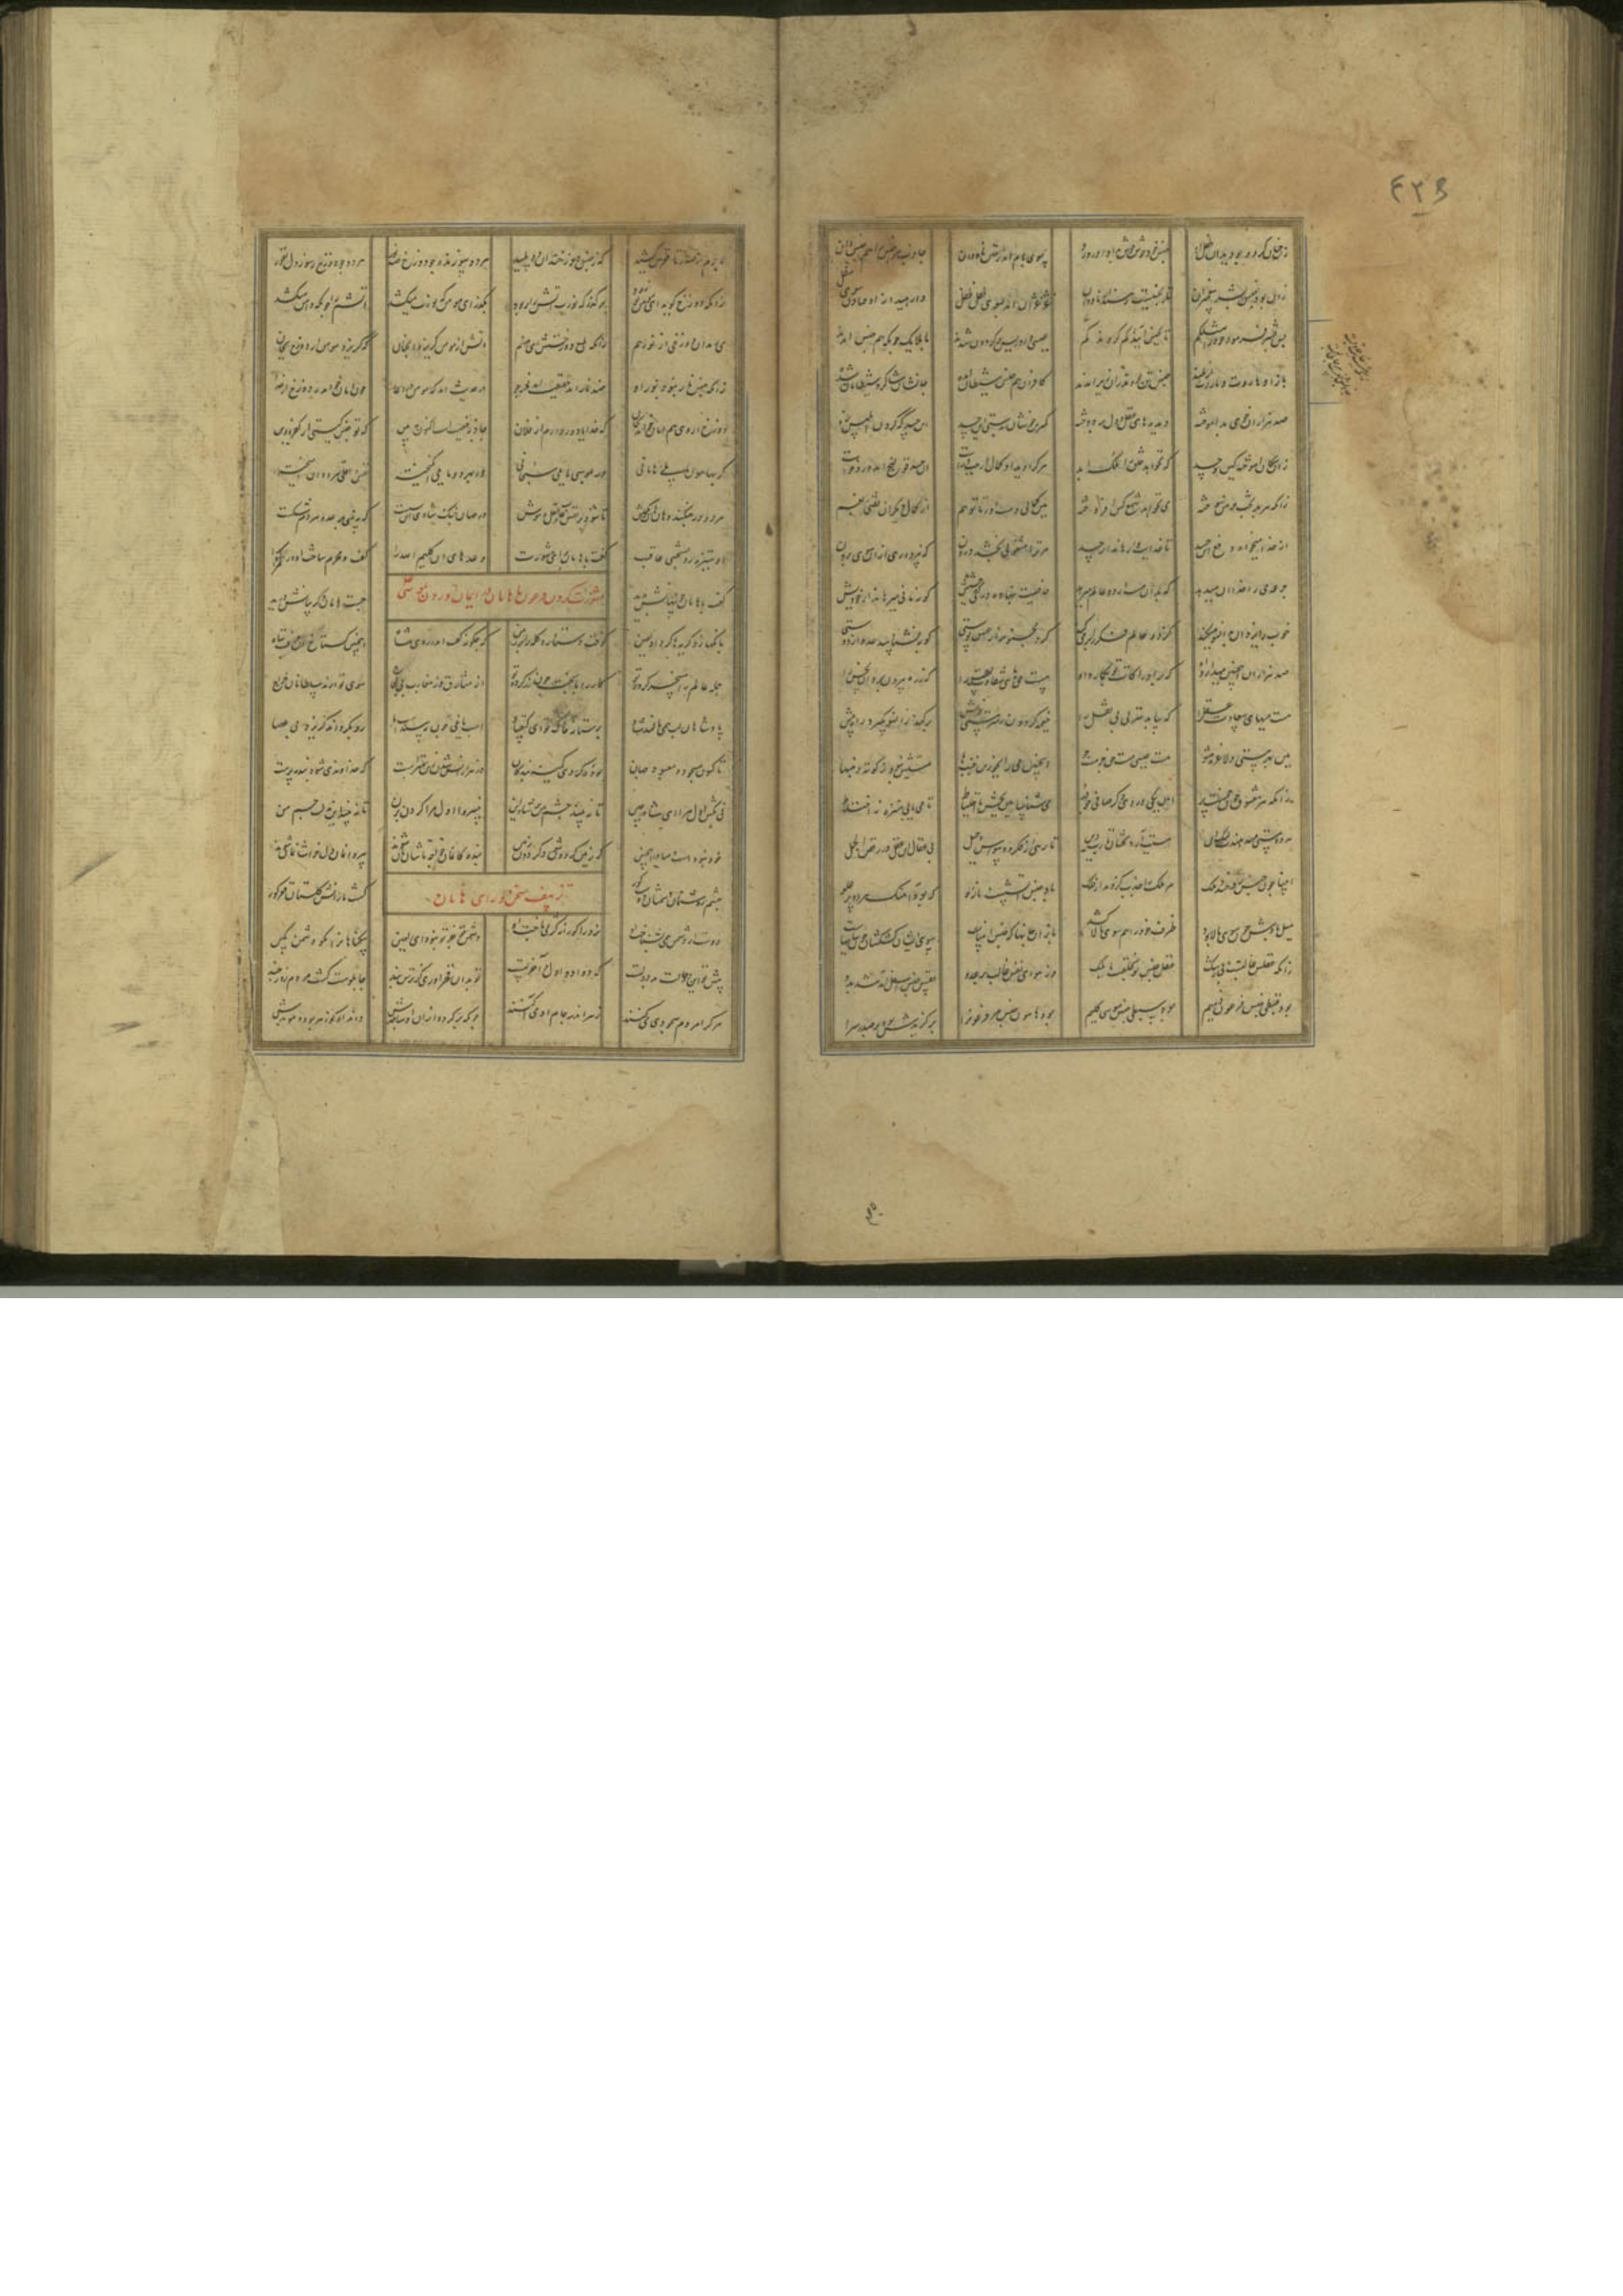 ۴۲۵
جنس خود خوش خوش بدو آورد رو سوی بام آمد ز متن ناودان جاذب هر جنس را هم جنس دان
زان بود جنس بشر پیغمبران تا بجنسیت رهند از ناودان غژغژان آمد بسوی طفل طفل وارهید از او فتادن سوی سفل
پس بشر فرمود خود را مثلکم تا بجنس آیید و کم گردید گم عیسی و ادریس بر گردون شدند با ملایک چونکه هم جنس آمدند
باز آن هاروت و ماروت از بلند جنس تن بودند زان زیر آمدند کافران هم جنس شیطان آمده جانشان شاگرد شیطانان شده
صد هزاران خوی بد آموخته دیده های عقل و دل بر دوخته کمترین خوشان بزشتی آن حسد آن حسد که گردن ابلیس زد
زان سگان آموخته حقد و حسد که نخواهد خلق را ملک ابد هر کرا دید او کمال از چپ و راست از حسد قولنجش آمد درد خاست
زانکه هر بدبخت خرمن سوخته می نخواهد شمع کس افروخته هین کمالی دست آور تا تو هم از کمال دیگران نفتی بغم
از خدا میخواه دفع این حسد تا خدایت وارهاند از حسد مر ترا مشغولیی بخشد درون که نپردازی از آن سوی برون
جرعه می را خدا آن میدهد که بدان مست از دو عالم میرهد خاصیت بنهاده در کف حشیش کو زمانی میرهاند از خودیش
خواب را یزدان بدانسان میکند کز دو عالم فکر را بر میکند کرد مجنون را ز عشق پوستی کو بنشناسد عدو از دوستی
صد هزاران این چنین می دارد او که بر ادراکات تو بگمارد او هست میهای شقاوت نفس را که ز ره بیرون برد آن نحس را
هست میهای سعادت عقل را که بیابد منزل بی نقل را خیمه گردون ز سرمستی خویش بر کند زان سو بگیرد راه پیش
هین بهر مستی دلا غره مشو هست عیسی مست حق خر مست جو این چنین می را بجو زین خنبها مستیش نبود ز کوته دنبها
زانکه هر معشوق چون خنبیست پر آن یکی درد و دگر صافی چو در می شناسا هین بچش با احتیاط تا میی یابی منزه ز اختلاط
هر دو مستی میدهندت لیک این مستیت آرد کشان تا رب دین تا رهی از فکر و وسواس و حیل بی عقال این عقل در رقص الجمل
انبیا چون جنس روحند و ملک مر ملک را جذب کردند از فلک باد جنس آتشست و یار او که بود آهنگ هر دو بر علو
ظرف خود را هم سوی بالا کشد باز آن جانها که جنس انبیاست سوی ایشان کش کشان چون سایهاست
زانکه عقلش غالبست و بی ز شک عقل جنس آمد بخلقت با ملک وان هوای نفس غالب بر عدو نفس جنس اسفل آمد شد بدو
بود قبطی جنس فرعون ذمیم بود سبطی جنس موسی کلیم بود هامان جنس مر فرعون را برگزیدش برد بر صدر سرا
لاجرم از صدر تا قعرش کشید که ز جنس دوزخند آن دو پلید هر دو سوزنده چو دوزخ ضد نور هر دو چون دوزخ ز نور دل نفور
زانکه دوزخ گوید ای مؤمن تو زود بر گذر که نورت آتش را ربود بگذر ای مؤمن که نورت میکشد آتشم را چونکه دامن میکشد
می رمد آن دوزخی از نور هم زانکه طبع دوزخستش ای صنم دوزخ از مؤمن گریزد آنچنان که گریزد مؤمن از دوزخ بجان
زانکه جنس نار نبود نور او ضد نار آمد حقیقت نور جو در حدیث آمد که مؤمن در دعا چون امان خواهد ز دوزخ از خدا
دوزخ از وی هم امان خواهد بجان که خدایا دور دارم از فلان جاذبه جنسیتست اکنون ببین که تو جنس کیستی از کفر و دین
گر بهامان مایلی هامانیی ور بموسی مایلی سبحانیی ور بهر دو مایلی انگیخته نفس و عقلی هر دوان آمیخته
هر دو در جنگند هان و هان بکوش تا شود بر نفس غالب عقل و هوش در جهان جنگ شادی این بسست که ببینی بر عدو هر دم شکست
آن ستیزه رو بسختی عاقبت گفت با هامان برای مشورت وعده های آن کلیم الله را گفت و محرم ساخت آن گمراه را
مشورت کردن فرعون با هامان در ایمان آوردن بموسی
گفت با هامان چو تنهایش بدید جست هامان و گریبان را درید
بانگها زد گریه ها کرد آن لعین کوفت دستار و کله را بر زمین که چگونه گفت اندر روی شاه این چنین گستاخ آن حرف تباه
جمله عالم را مسخر کرده تو کار را با بخت چون زر کرده تو از مشارق وز مغارب بی لجاج سوی تو آرند سلطانان خراج
پادشاهان لب همی مالند شاد بر ستانه خاک تو ای کیقباد اسب یاغی چون ببیند اسب ما رو بگرداند گریزد بی عصا
تا کنون معبود و مسجود جهان بوده گردی کمینه بندگان در هزار آتش شدن زین خوشترست که خداوندی شود بنده پرست
نی بکش اول مرا ای شاه چین تا نبیند چشم من بر شاه این خسروا اول مرا گردن بزن تا نبیند این مذلت چشم من
خود نبودست و مبادا این چنین که زمین گردون شود گردون زمین بندگانمان خواجه تاش ما شوند بی دلانمان دلخراش ما شوند
چشم روشن دشمنان و دوست کور گشت ما را پس گلستان قعر گور
تزییف سخن و رای هامان
دوست از دشمن همی نشناخت او نرد را کورانه کژ می باخت او دشمن تو جز تو نبود ای لعین بیگناهان را مگو دشمن بکین
پیش تو این حالت بد دولتست که دوادو اول و آخر لتست تو بدان فخر آوری کز ترس و بند چاپلوست گشت مردم روز چند
هر کرا مردم سجودی می کنند زهر اندر جان او می آکنند چونکه برگردد ازو آن ساجدش داند او کان زهر بود و موبدش